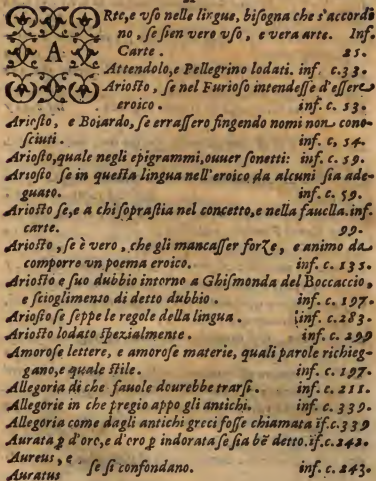 A
Rte, e vso nelle lingue, bisogna che s'accordi
no, se sien vero vso, e vera arte. Inf.
Carte. 25.
Attendolo, e Pellegrino lodati. inf. c.33.
Ariosto, se nel Furioso intendesse d'essere
eroico. inf. c. 53.
Ariosto, e Boiardo, se errassero fingendo nomi non cono-
sciuti. inf. c, 54.
Ariosto, quale negli epigrammi, ouuer sonetti: inf. c. 59.
Ariosto se in questa lingua nell'eroico da alcuni sia ade-
guato. inf. c. 59.
Ariosto se, e a chi soprastia nel concetto, e nella fauella. inf.
carte. 99.
Ariosto, se è vero, che gli mancasser forze, e animo da
comporre vn poema eroico. inf. c. 135.
Ariosto e suo dubbio intorno a Ghismonda del Boccaccio,
e scioglimento di detto dubbio. inf. c. 197.
Ariosto se seppe le regole della lingua. inf. c. 283.
Ariosto lodato spezialmente. inf. c. 299
Amorose lettere, e amorose materie, quali parole richieg-
gano, e quale stile. inf. c. 197.
Allegoria di che fauole dourebbe trarsi. inf. c. 211.
Allegorie in che pregio appo gli antichi. inf. c. 339.
Allegoria come dagli antichi greci fosse chiamata ïf. c.339
Aurata p d'oro, e d'oro p indorata se sia bẽ detto. ïf. c.242.
Aureus, e
Auratus se si confondano. inf. c. 243.